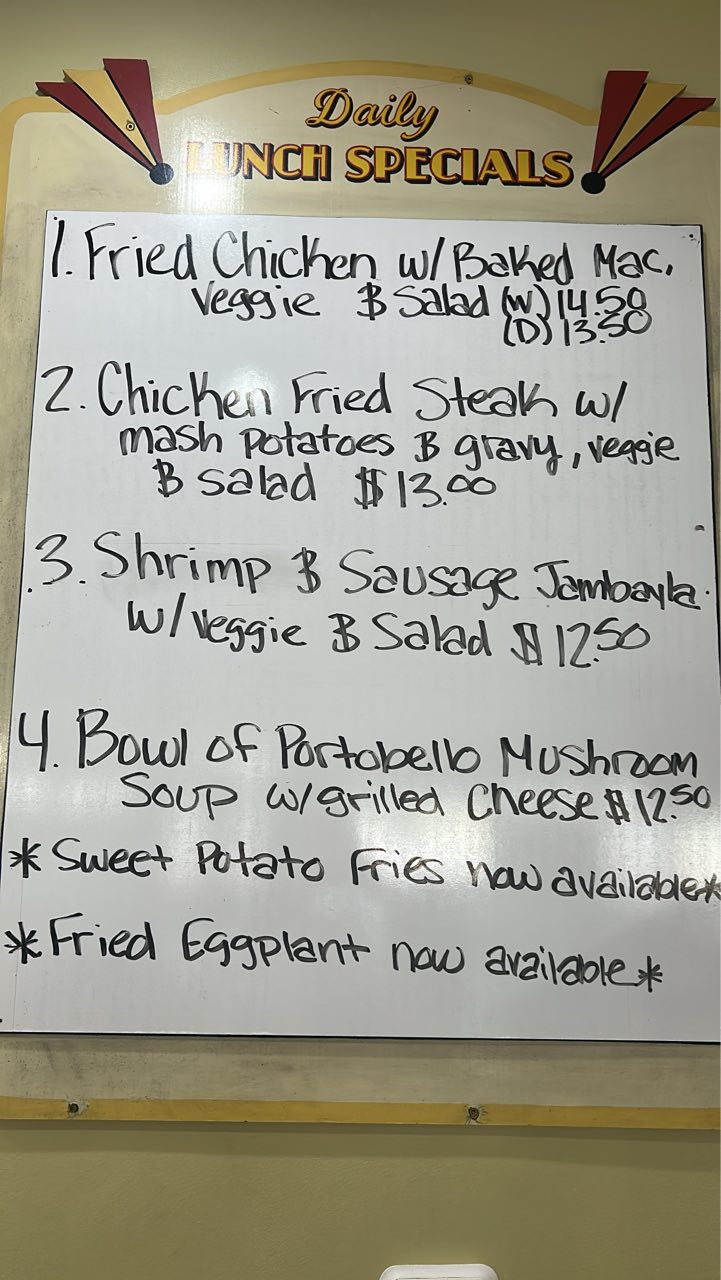 Daily
LUNCH SPECIALS
1. Fried Chicken w/ Baked Mac,
Veggie & Salad (W) 14.50
(D) 13.50
2. Chicken Fried Steak w/
mash potatoes & gravy, veggie
& salad $13.00
3. Shrimp & Sausage Jambayla
w/ Veggie & Salad $12.50
4. Bowl of Portobello Mushroom
Soup w/ grilled Cheese $12.50
*Sweet Potato Fries now available*
*Fried Eggplant now available*